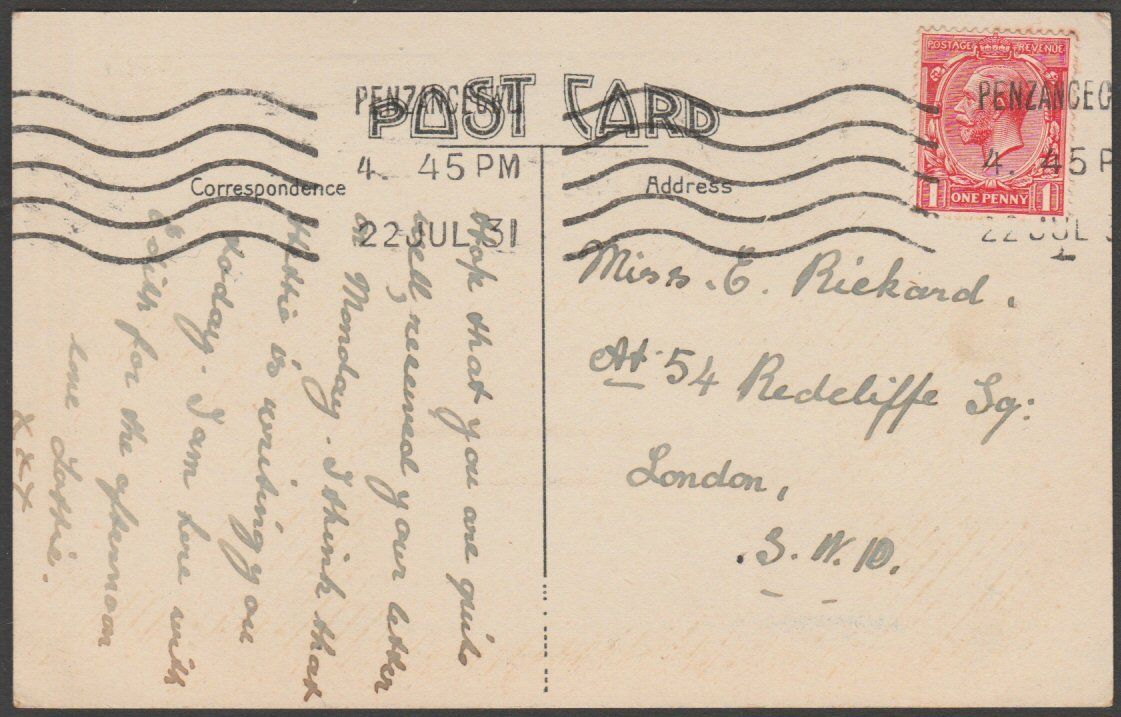 POST CARD
PENZANCE CWL
4. 45 PM
22 JUL 31
Correspondence
Hope that you are quite
well, received your letter
on Monday. I think that
Hettie is writing you
today. I am here with
Edith for the afternoon
love Lottie.
x x x
Address
Miss. E. Rickard,
At 54 Redcliffe Sq:
London,
S. W. 10.
POSTAGE REVENUE
1 ONE PENNY 1
PENZANCE C
4. 45 P
22 JUL 3